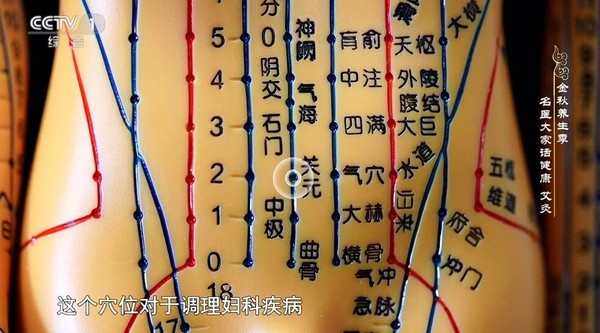 CCTV 1
综合
分 0
5
4
3
2
1
0
18
17
阴交
石门
中极
神阙
气海
关元
曲骨
肓俞
中注
四满
气穴
大赫
横骨
天枢
外陵
腹结
大巨
水道
归来
气冲
急脉
大横
五枢
维道
府舍
冲门
金秋养生季
名医大家话健康 艾灸
这个穴位对于调理妇科疾病